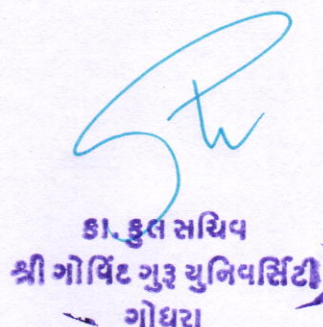 કા. કુલ સચિવ
શ્રી ગોવિંદ ગુરૂ યુનિવર્સિટી
ગોધરા